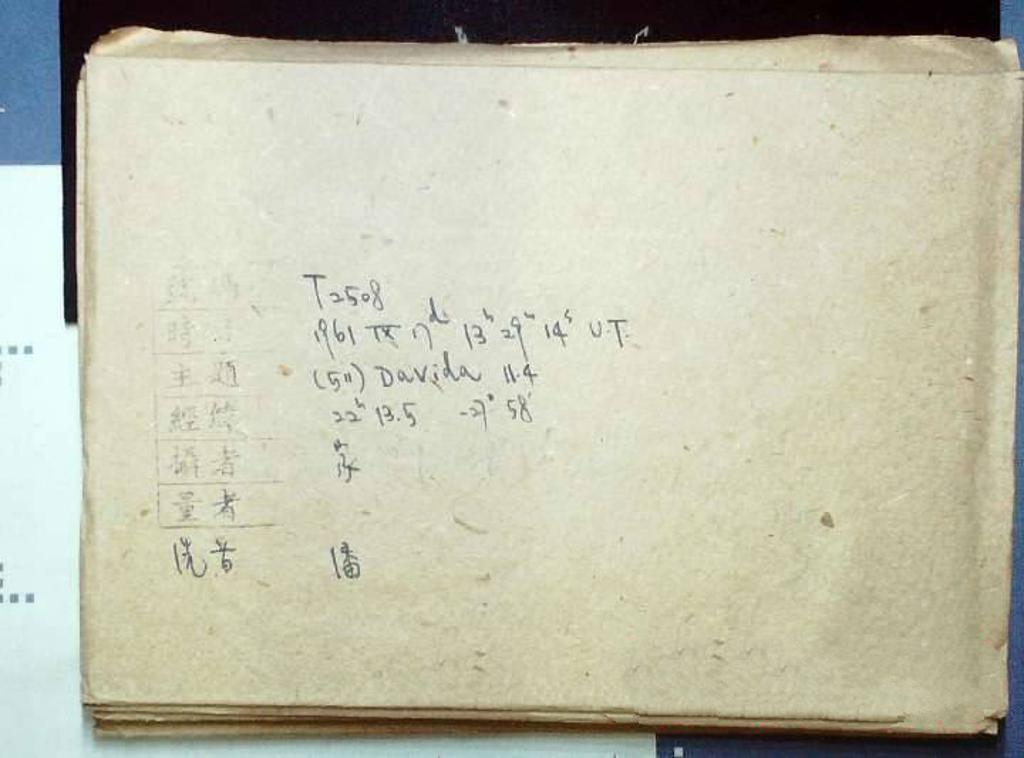 號碼 T2508
時 1961 IX 17ᵈ 13ʰ 29ᵐ 14ˢ U.T.
主題 (511) Davida 11.4
經緯 22ʰ 13.5 -27° 58'
攝者
量者
洗者 潘